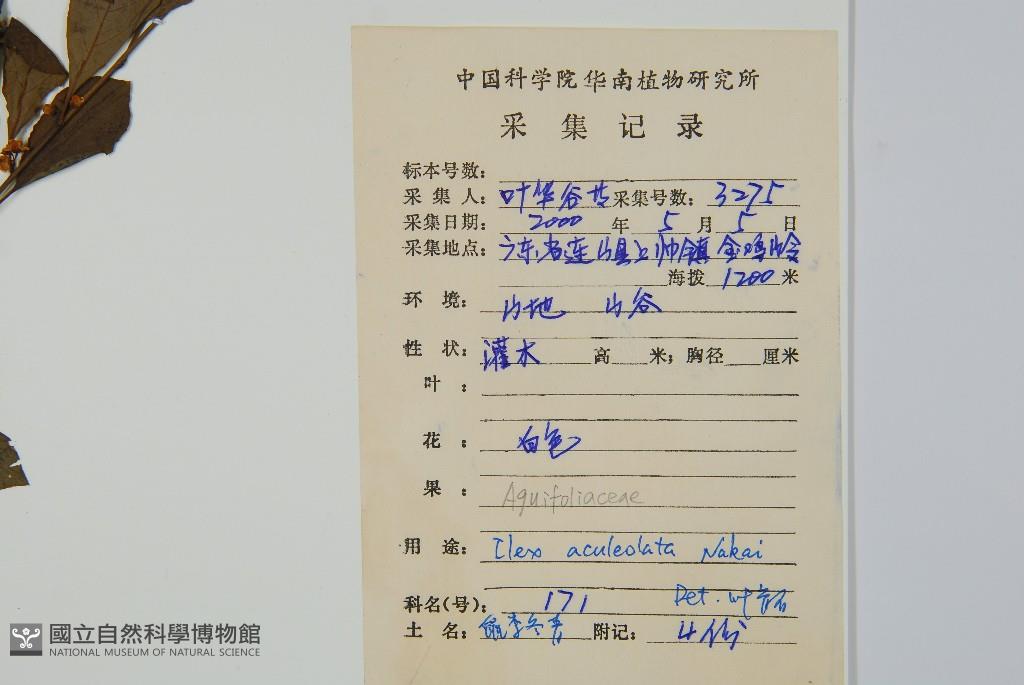 中国科学院华南植物研究所
采集记录
标本号数:
采集人: 叶华谷 采集号数: 3275
采集日期: 2000 年 5 月 5 日
采集地点: 广东省连山县上帅镇 金鸡岭
海拨 1200 米
环境: 山地 山谷
性状: 灌木 高 米; 胸径 厘米
叶:
花: 白色
果: Aquifoliaceae
用途: Ilex aculeolata Nakai
科名(号): 171 Det. 叶
土名: 冬青 附记: 4份
國立自然科學博物館
NATIONAL MUSEUM OF NATURAL SCIENCE